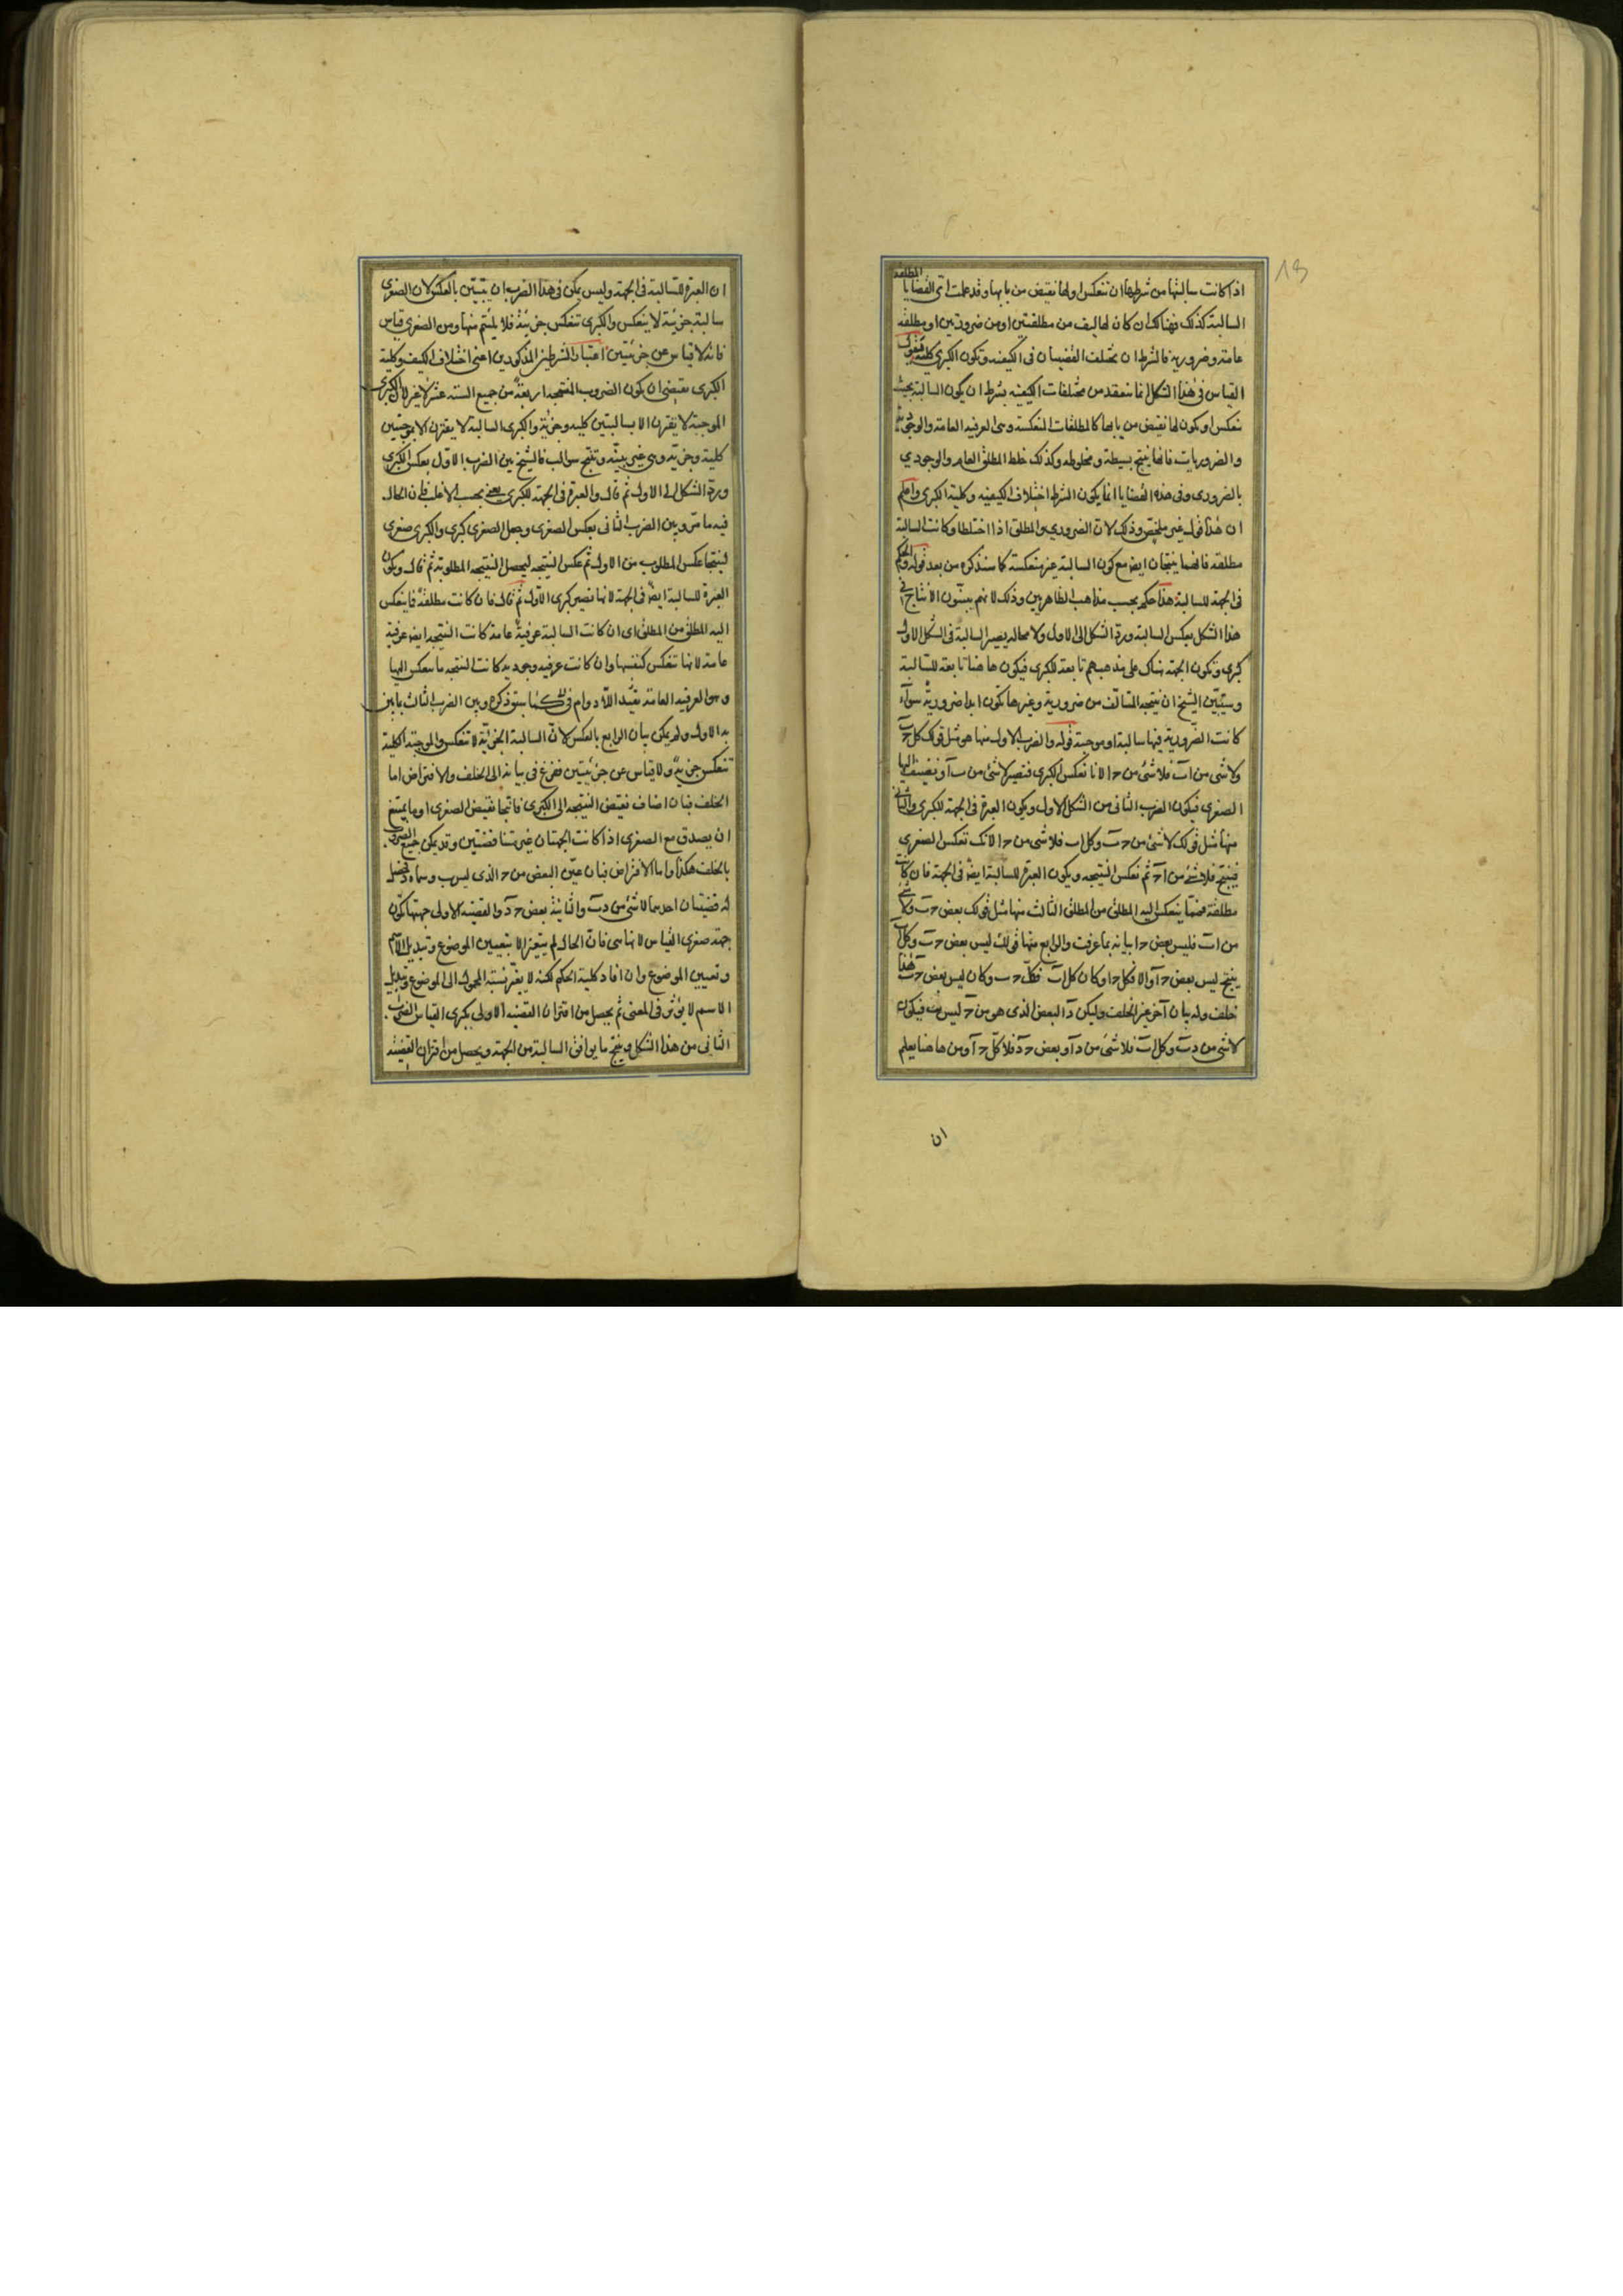 13
اذا كانت سالبتها من شرطها ان تنعكس او لها نقيض من بابها وقد علمت اى القضايا المطلقة
السالبة كذلك فهنالك ان كان تاليف من مطلقتين او من ضروريتين او مطلقة
عامة وضرورية فالشرط ان تختلف القضيتان فى الكيفية وتكون الكبرى كلية فنقول
القياس فى هذا الشكل انما ينعقد من مختلفات الكيفية بشرط ان يكون السالبة بحيث
تنعكس او يكون لها نقيض من بابها كالمطلقات المنعكسة وهى العرفية العامة والوجودية
والضروريات فانها ينتج بسيطة ومخلوطة وكذلك خلط المطلق العام والوجودي
بالضرورى وفى هذه القضايا انما يكون الشرط اختلاف الكيفية وكلية الكبرى واعلم
ان هذا قول غير ملخص وذلك لان الضروري والمطلق اذا اختلطا وكانت السالبة
مطلقة فانهما ينتجان ايضا مع كون السالبة غير منعكسة كما سنذكره من بعد قوله والحكم
فى الجهة للسالبة هذا حكم بحسب مذاهب الظاهريين وذلك لانهم يبينون الانتاج فى
هذا الشكل بعكس السالبة ورد الشكل الى الاول ولا محالة يصير السالبة فى الشكل الاول
كبرى وتكون الجهة هناك على مذهبهم تابعة للكبرى فيكون هاهنا تابعة للسالبة
وسيبين الشيخ ان نتيجة المتالف من ضرورية وغيرها تكون ابدا ضرورية سواء
كانت الضرورية فيها سالبة او موجبة قوله والضرب الاول منها هو مثل قولك كل حـ ب
ولا شى من ا ب فلا شى من حـ ا لانا نعكس الكبرى فتصير لا شى من ب ا ونضيف اليها
الصغرى فيكون الضرب الثانى من الشكل الاول ويكون العبرة فى الجهة للكبرى والثانى
منها مثل قولك لا شى من حـ ب وكل ا ب فلا شى من حـ ا لانك تعكس الصغرى
فينتج فلا شى من ا حـ ثم تعكس النتيجة ويكون العبرة للسالبة ايضا فى الجهة فان كانت
مطلقة فما ينعكس اليه المطلق من المطلق الثالث منها مثل قولك بعض حـ ب ولا شى
من ا ب فليس بعض حـ ا بيانه بما عرفت والرابع منها قولك ليس بعض حـ ب وكل ا ب
ينتج ليس بعض حـ ا والا فكل حـ ا وكان كل ا ب فكل حـ ب وكان ليس بعض حـ ب هذا
خلف وله بيان آخر غير الخلف وليكن د البعض الذى هو من حـ ليس ب فيكون
لا شى من د ب وكل ا ب فلا شى من د ا وبعض حـ د فلا كل حـ ا ومن هاهنا يعلم
ان
ان العبرة للسالبة فى الجهة وليس يمكن فى هذا الضرب ان يتبين بالعكس لان الصغرى
سالبة جزئية لا ينعكس والكبرى تنعكس جزئية فلا يلتئم منها ومن الصغرى قياس
فانه لا قياس عن جزئيتين اعتبار الشرطين المذكورين اعنى اختلاف الكيف وكلية
الكبرى يقتضى ان يكون الضروب المنتجة اربعة من جميع الستة عشر لا غير لان الكبرى
الموجبة لا تقترن الا بسالبتين كلية وجزئية والكبرى السالبة لا يقترن الا بموجبتين
كلية وجزئية وهى غير بينة وتنتج سوالب فالشيخ بين الضرب الاول بعكس الكبرى
ورد الشكل الى الاول ثم قال والعبرة فى الجهة للكبرى يعنى بحسب الاغلب فان الحال
فيه ما مر وبين الضرب الثانى بعكس الصغرى وجعل الصغرى كبرى والكبرى صغرى
لينتجا عكس المطلوب من الاول ثم عكس النتيجة ليحصل النتيجة المطلوبة ثم قال ويكون
العبرة للسالبة ايضا فى الجهة لانها تصير كبرى الاول ثم قال فان كانت مطلقة فما ينعكس
اليه المطلق من المطلق اى ان كانت السالبة عرفية عامة كانت النتيجة ايضا عرفية
عامة لانها تنعكس كنفسها وان كانت عرفية وجودية كانت النتيجة ما تنعكس اليها
وهو العرفية العامة بقيد اللادوام فى كما سبق ذكره وبين الضرب الثالث بما بين
به الاول ولم يمكن بيان الرابع بالعكس لان السالبة الجزئية لا تنعكس والموجبة الكلية
تنعكس جزئية ولا قياس عن جزئيتين ففزع فى بيانه الى الخلف والافتراض اما
الخلف فبان اضاف نقيض النتيجة الى الكبرى فانتجا نقيض الصغرى او ما يمتنع
ان يصدق مع الصغرى اذا كانت الجهتان غير متناقضتين وقد يمكن جميع الضروب
بالخلف هكذا واما الافتراض فبان عين البعض من حـ الذى ليس ب وسماه د فحصل
له قضيتان احديهما لا شى من د ب والثانية بعض حـ د والقضية الاولى جهتها تكون
جهة صغرى القياس لانها هى فان الحال لم يتغير الا بتعيين الموضوع وتبديل الاسم
وتعيين الموضوع وان افاد كلية الحكم لكنه لا يغير نسبة المحمول الى الموضوع وتبديل
الاسم لا يؤثر فى المعنى ثم يحصل من اقتران القضية الاولى بكبرى القياس الضرب
الثانى من هذا الشكل وينتج ما يوافق السالبة من الجهة ويحصل من اقتران القضية